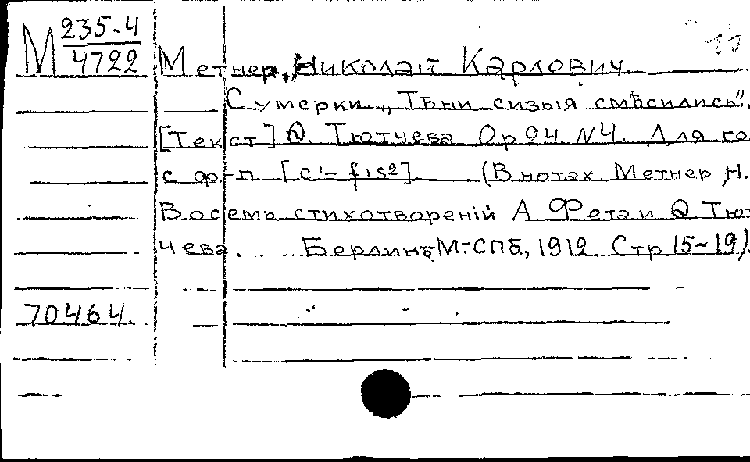 М 235-4
4722
Метнер, Николай Карлович
Сумерки „Тѣни сизыя смѣсились".
[Текст] Ѳ. Тютчева Ор 24 N4. Для го
с ф-п [c'- fis²] (В нотах Метнер Н.
Восемь стихотвореній А Фета и Ѳ Тют
чева. Берлинъ, М-СПБ, 1912. Стр 15-19)
70464.